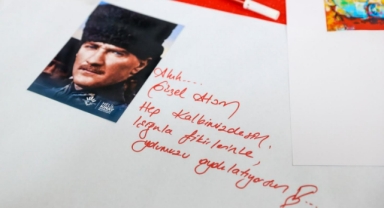 Ahh....
Güzel Atam
Hep Kalbimizdesin.
Işığınla, fikirlerinle,
yolumuzu aydınlatıyorsun